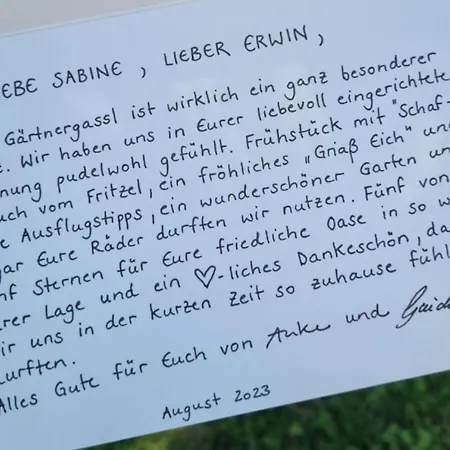 EBE SABINE, LIEBER ERWIN,
Gärtnergassl ist wirklich ein ganz besonderer
. Wir haben uns in Eurer liebevoll eingerichtete
nung pudelwohl gefühlt. Frühstück mit "Schaf-
uch vom Fritzel, ein fröhliches „Griaß Eich" und
e Ausflugstipps, ein wunderschöner Garten un
gar Eure Räder durften wir nutzen. Fünf von
nf Sternen für Eure friedliche Oase in so w
rer Lage und ein ♡-liches Dankeschön, da
ir uns in der kurzen Zeit so zuhause fühl
urften.
Alles Gute für Euch von Anke und
August 2023